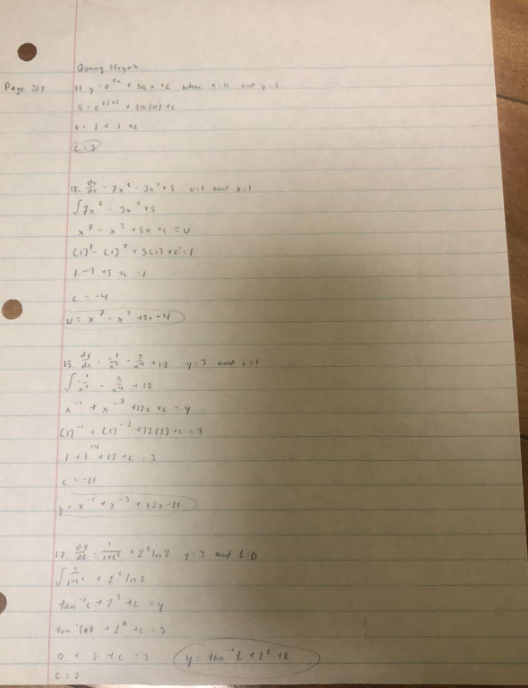 Quang Huynh
Page 328
11. y = e^2x + sin x + c when x=0 and y=5
5 = e^2(0) + sin(0) + c
c=3
13. du/dx = 7x^6 - 3x^2 + 5 u=1 and x=1
∫7x^6 - 3x^2 + 5
x^7 - x^3 + 5x + c = u
(1)^7 - (1)^3 + 5(1) + c = 1
1 - 1 + 5 + c = 1
c = -4
u = x^7 - x^3 + 5x - 4
15. dy/dx = -1/x^2 - 3/x^4 + 12 y=3 and x=1
∫-1/x^2 - 3/x^4 + 12
x^-1 + x^-3 + 12x + c = y
(1)^-1 + (1)^-3 + 12(1) + c = 3
1 + 1 + 12 + c = 3
c = -11
y = x^-1 + x^-3 + 12x - 11
17. dy/dt = 1/1+t^2 + 2^t ln2 y=3 and t=0
∫1/1+t^2 + 2^t ln2
tan^-1 t + 2^t + c = y
tan^-1(0) + 2^0 + c = 3
0 + 1 + c = 3 y = tan^-1 t + 2^t + 2
c = 2